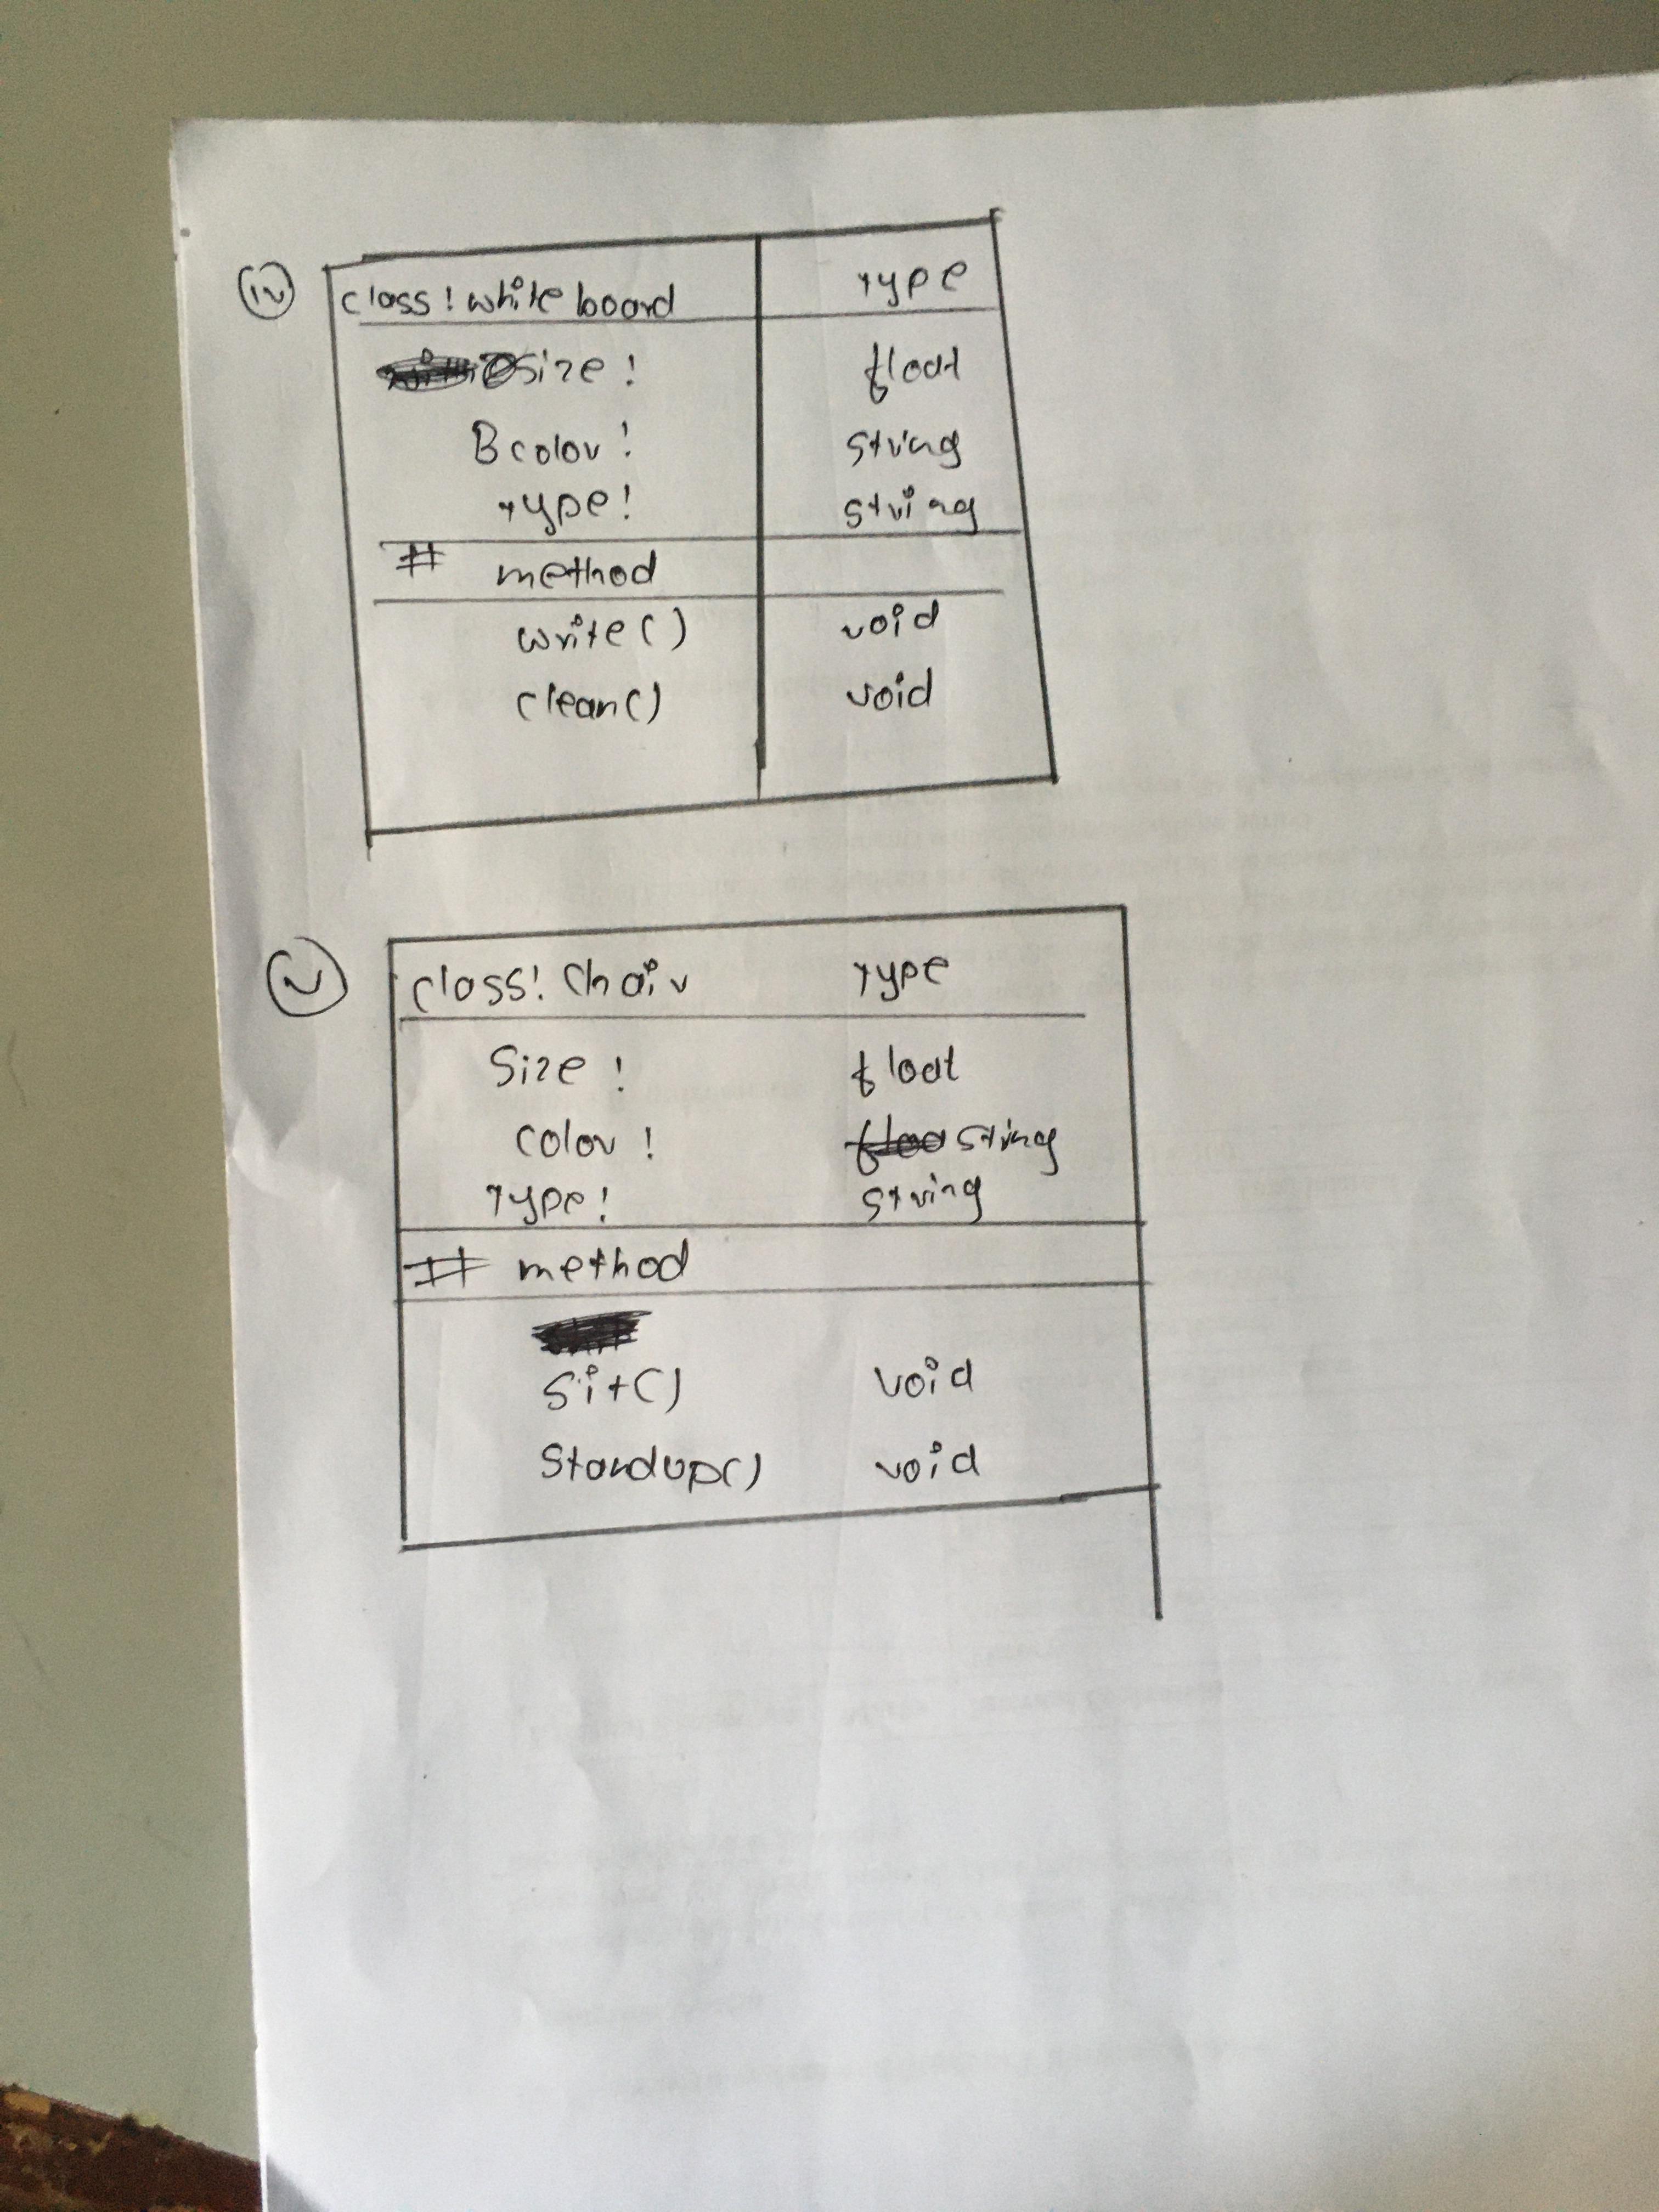 (iv) class: white board Type
size: float
B color: string
Type: string
# method
write() void
clean() void
(v) class: Chair Type
Size: float
color: string
Type: string
# method
Sit() void
Standup() void